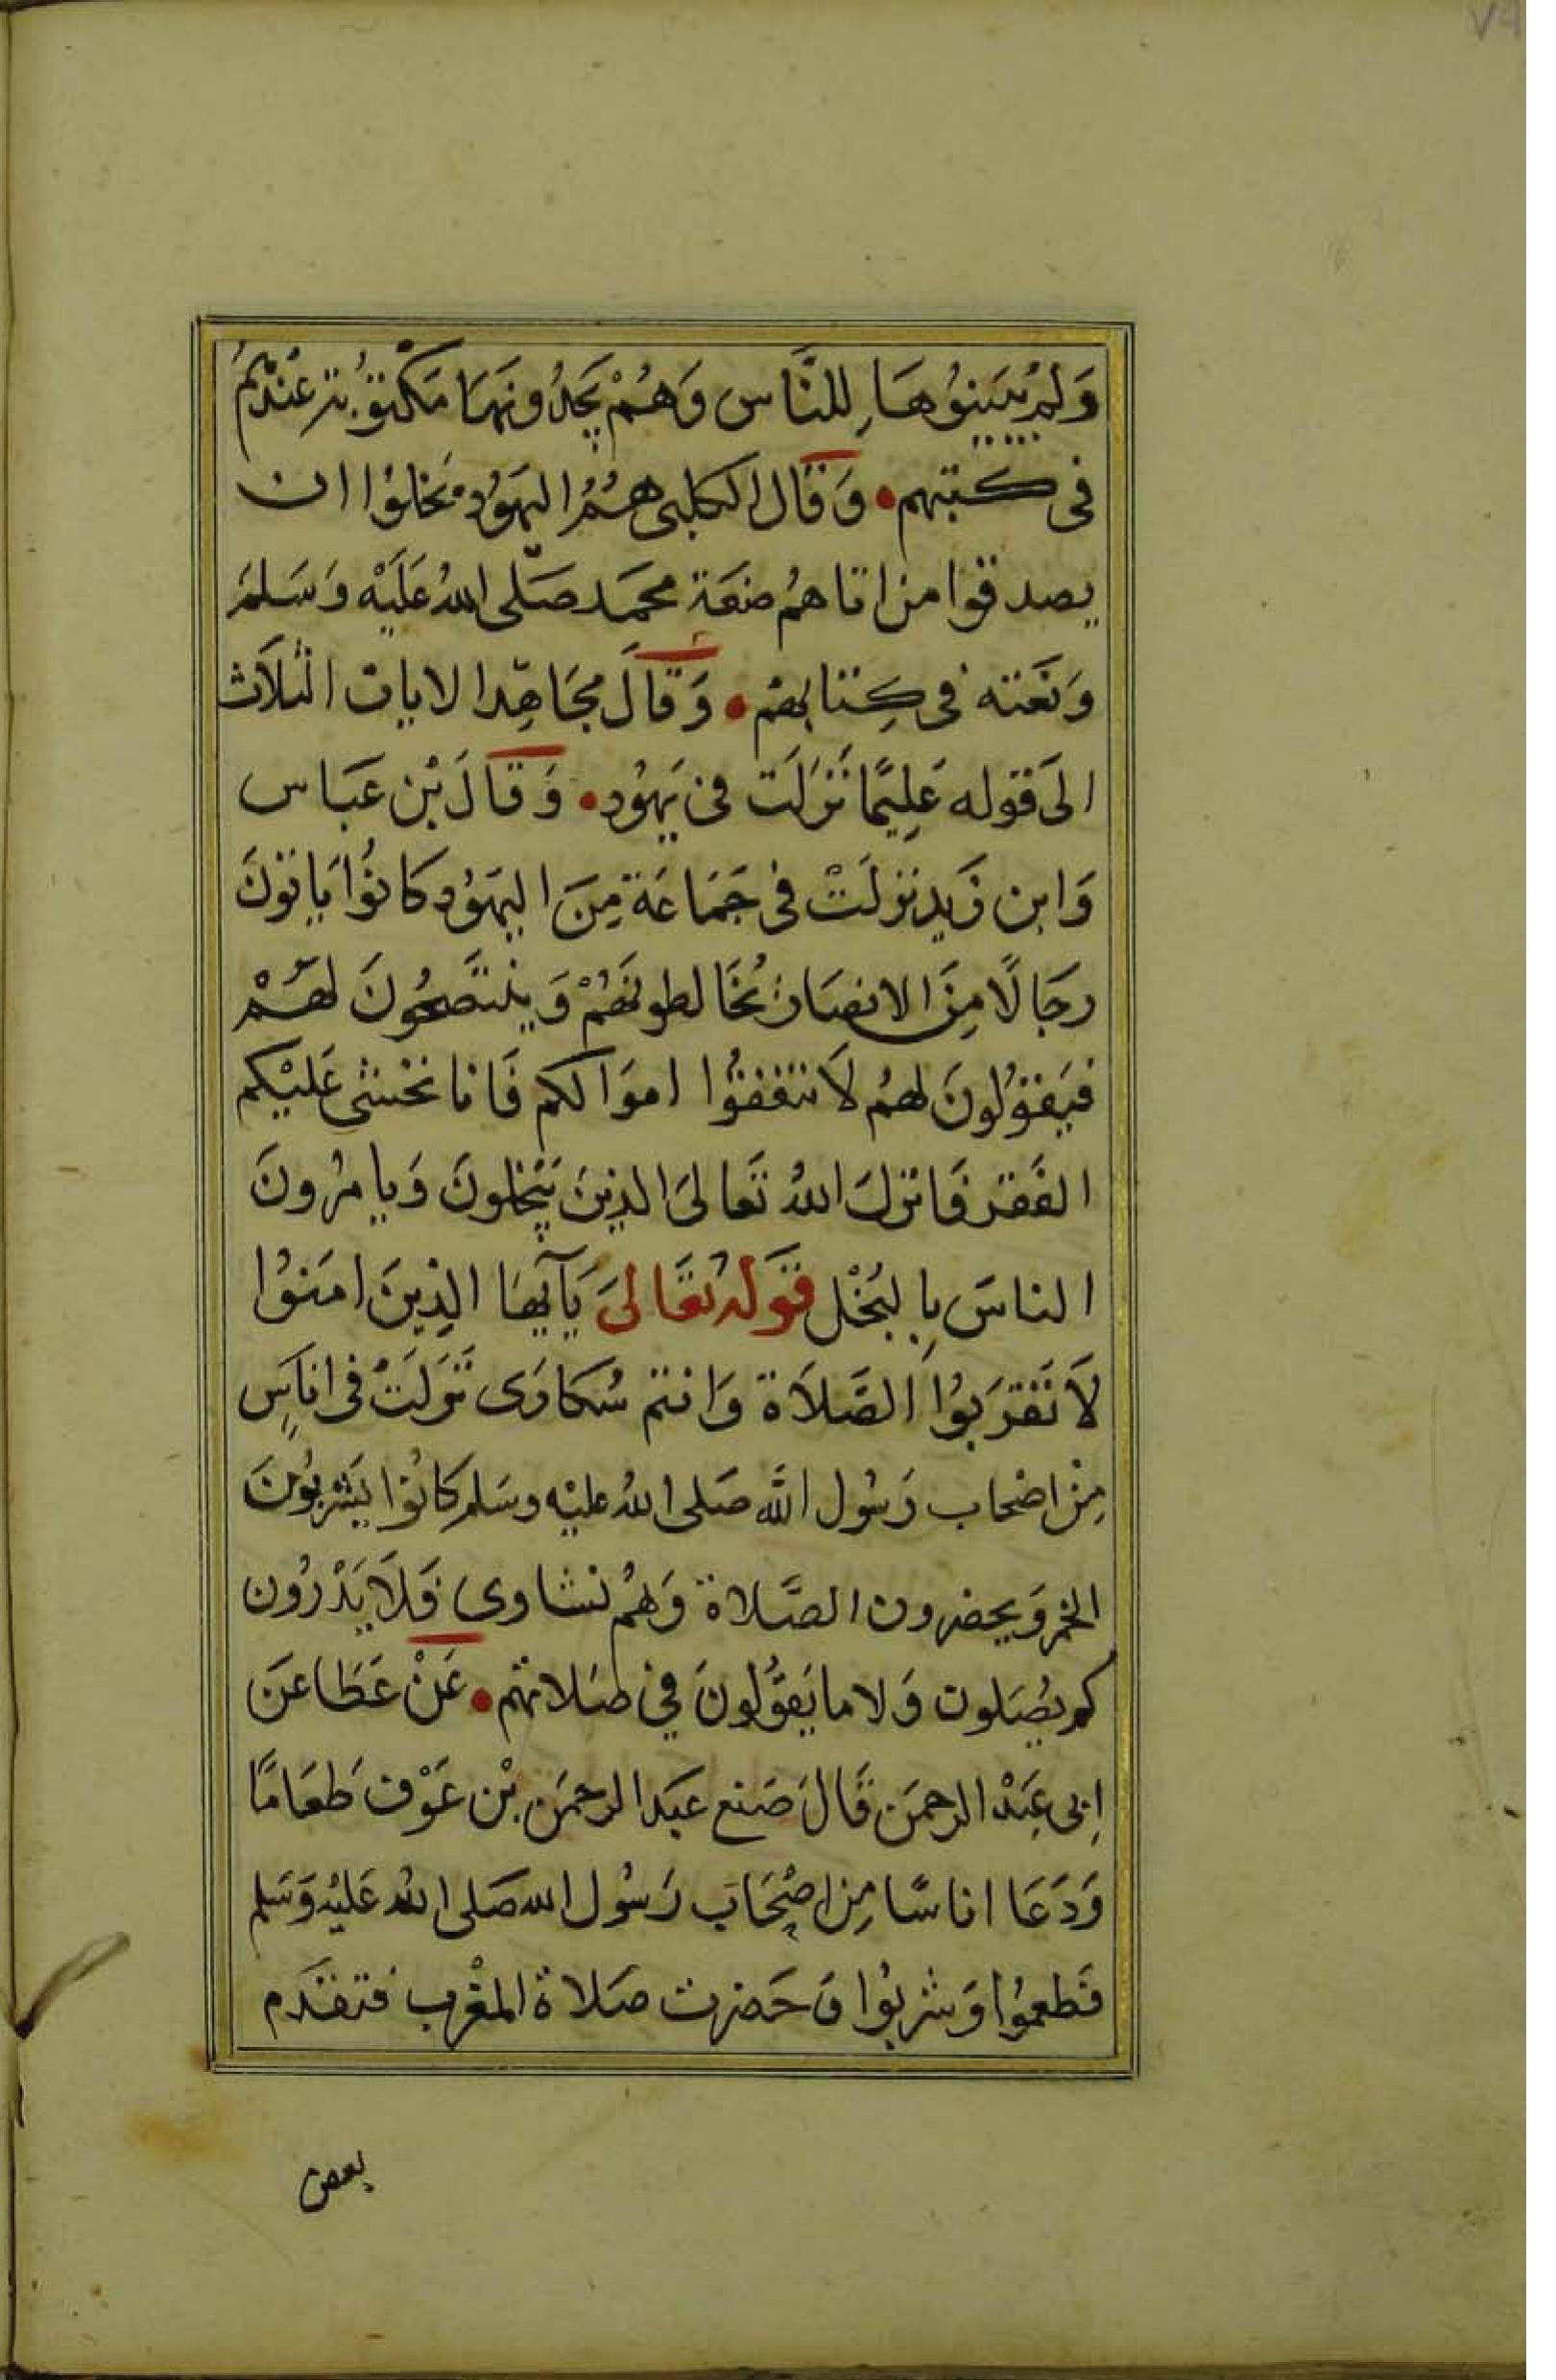 ٧٩
وَلَمْ يُبَيِّنُوْهَا لِلنَّاس وَهُمْ يَجِدُونَهَا مَكْتُوْبَة عِنْدَهُمْ
فى كتبهم • وَقَال الكلبى هُمُ اليَهُوْد بخلوْا ان
يصدقوا من اتاهُم صفَة محمَد صَلى اللهُ عَلَيْه وَسَلمَ
وَنَعْته فى كِتابهمْ • وَقَالَ مجَاهِد الايات الثلاَث
الىَ قوله عَلِيمًا نَزَلَت فى يَهُوْد • وَقَالَ بْن عَبَاس
وَابن زَيد نزلَتْ فى جَمَاعَة مِنَ اليَهُوْد كانوُا يَاتوْنَ
رجَالًا مِنَ الانصَار يُخَالطونَهُمْ وَيَنْتَصِحُونَ لَهَمْ
فيَقوُلونَ لهمُ لاَ تنفقوُا اموَالكم فَانا نخشى عَليْكم
الفَقر فَانزلَ اللهُ تَعالىَ الذينَ يَبْخلونَ وَيامرُونَ
الناسَ بِالبُخْل قَولهُ تعَالىَ يَآيهَا الذِينَ امَنوُا
لاَ تَقرَبوُا الصَّلاَة وَانتم سُكارَى نَزَلَتْ فى اناسِ
مِنْ اصْحاب رَسُول الله صَلى اللهُ عليْه وسَلم كانوُا يَشربوُنَ
الخمر وَيحضرون الصَّلاة وَهُم نشاوى فَلَا يَدْرُون
كم يُصَلون وَلا ما يَقوُلونَ فِي صَلاتهم • عَنْ عَطَا عَن
اِبى عَبْد الرحمَن قَالَ صَنع عَبَد الرحمَن بْن عَوْف طَعَامًا
وَدَعَا اناسًا مِن اصْحَاب رَسُول الله صَلى اللهُ عَليْه وَسَلم
فَطعموُا وَشربوُا وَحَضرت صَلاة المغْرب فتقدَم
بعض